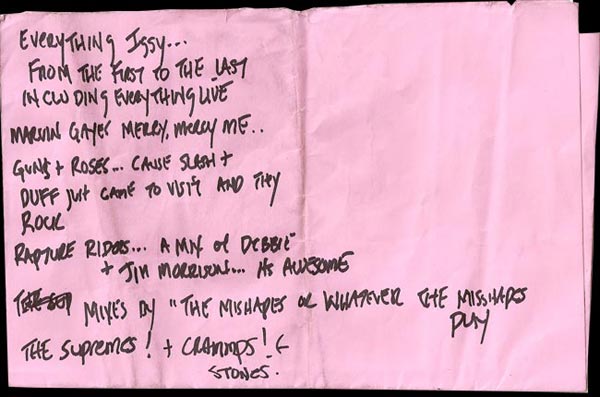 EVERYTHING IGGY...
FROM THE FIRST TO THE LAST
INCLUDING EVERYTHING LIVE
MARVIN GAYES MERCY, MERCY ME..
GUNS + ROSES... CAUSE SLASH +
DUFF JUST CAME TO VISIT AND THEY
ROCK
RAPTURE RIDERS... A MIX OF DEBBIE
+ JIM MORRISON... IT'S AWESOME
MIXES BY "THE MISHAPES OR WHATEVER THE MISSHAPES
PLAY
THE SUPREMES! + CRAMMPS! +
STONES.